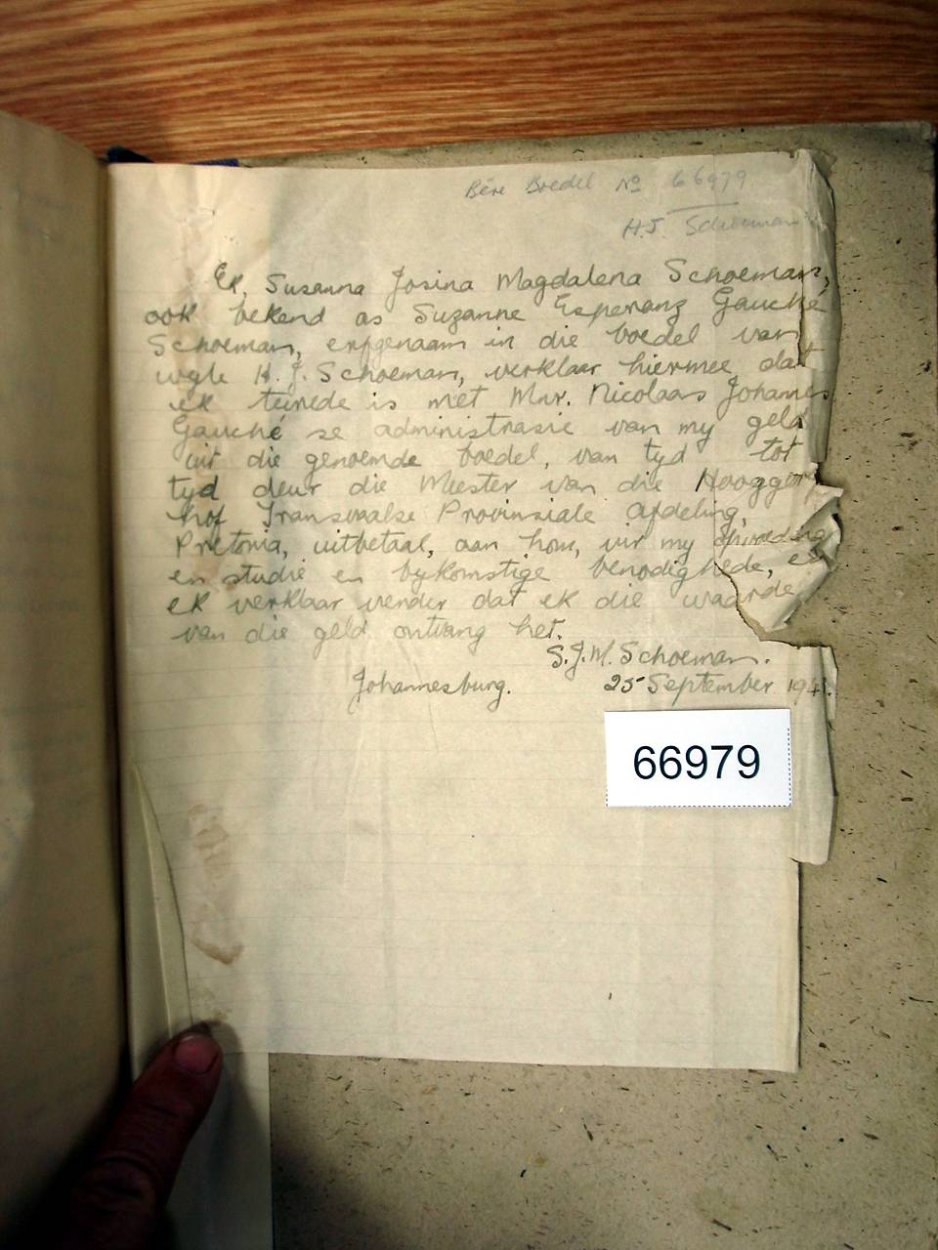 Bêre Boedel No 66979
H.J. Schoeman
Ek, Susanna Josina Magdalena Schoeman,
ook bekend as Suzanne Esperanz Gauché
Schoeman, erfgenaam in die boedel van
wyle H. J. Schoeman, verklaar hiermee dat
ek tevrede is met Mnr. Nicolaas Johannes
Gauché se administrasie van my geld
uit die genoemde boedel, van tyd tot
tyd deur die Meester van die Hooggere
hof Transvaalse Provinsiale afdeling,
Pretoria, uitbetaal, aan hom, vir my opvoeding
en studie en bykomstige benodighede, en
ek verklaar verder dat ek die waarde
van die geld ontvang het.
S.J.M. Schoeman.
Johannesburg. 25 September
66979